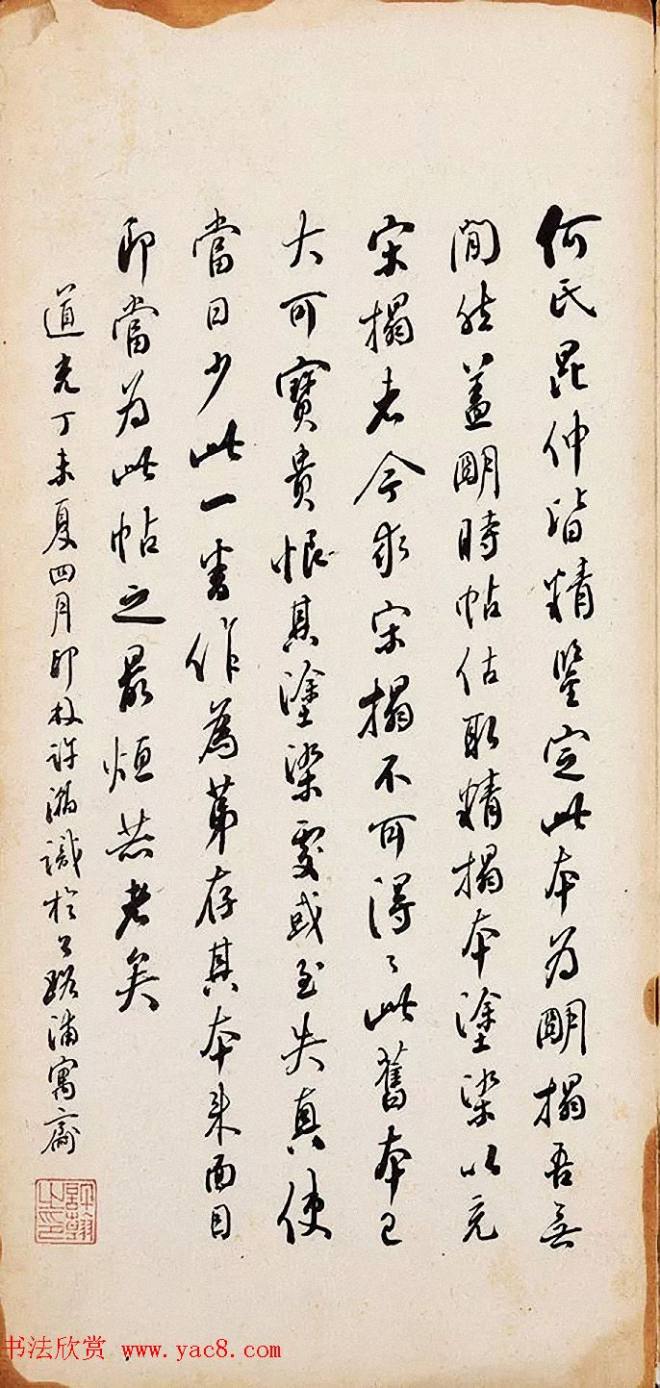 何氏昆仲皆精鑒定此本为朙搨吾无
閒然蓋朙時帖估取精搨本塗染以充
宋搨者今求宋搨不可得〻此舊本已
大可寶貴恨其塗染處或至失真使
當日少此一番作為第存其本來面目
即當为此帖之最烜赫者矣
道光丁未夏四月印林許瀚識於公路浦寓齋
許瀚之印
书法欣赏 www.yac8.com